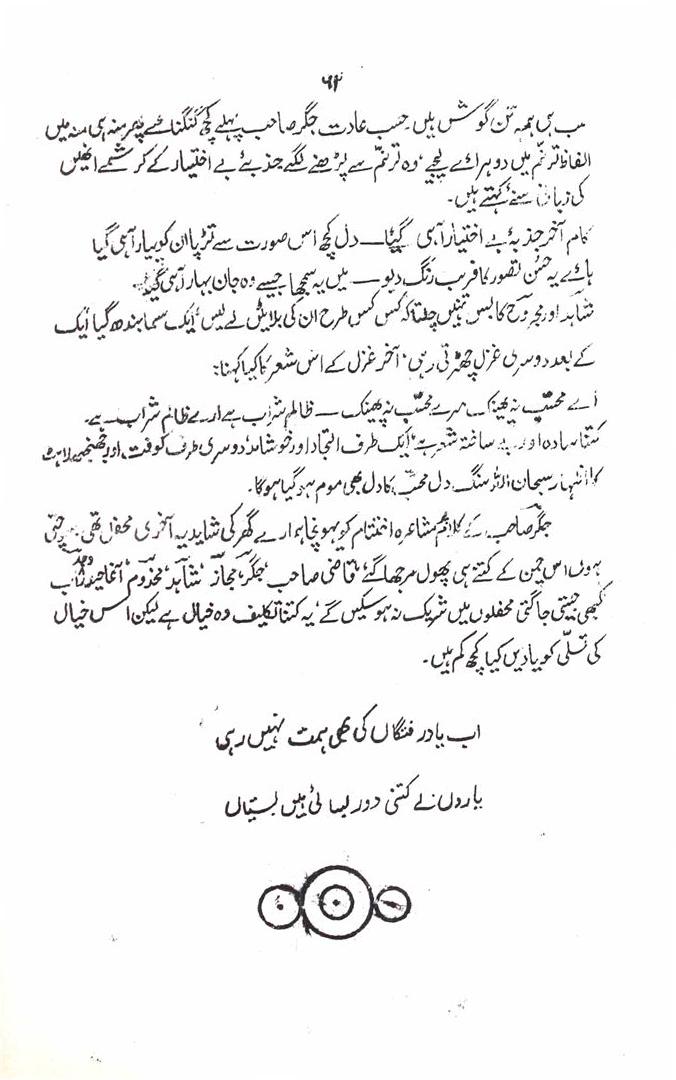 ۶۲
سب ہی ہمہ تن گوش ہیں۔ حسب عادت جگر صاحب پہلے کچھ گنگنائے پھر منہ ہی منہ میں
الفاظ ترنم میں دوہرائے لیجیے وہ ترنم سے پڑھنے لگے جذبۂ بے اختیار کے کرشمے انھیں
کی زبان سنئے کہتے ہیں۔
کام آخر جذبۂ بے اختیار آہی گیا — دل کچھ اس صورت سے تڑپا ان کو پیار آہی گیا
ہائے یہ حسن تصور کا فریب رنگ و بو — میں یہ سمجھا جیسے وہ جان بہار آہی گیا
شاہد اور مجروح کا بس نہیں چلتا کہ کس کس طرح ان کی بلائیں لے لیں، ایک سما بندھ گیا ایک
کے بعد دوسری غزل چھڑتی رہی، آخر غزل کے اس شعر کا کیا کہنا:
اے محتسب نہ پھینک۔ مرے محتسب نہ پھینک — ظالم شراب ہے ارے ظالم شراب ہے۔
کتنا سادہ اور بے ساختہ شعر ہے، ایک طرف التجا اور خوشامد، دوسری طرف کوفت، اور جھنجھلاہٹ
کا اظہار سبحان اللہ سنگ دل محتسب کا دل بھی موم ہو گیا ہوگا۔
جگر صاحب کے کلام پر مشاعرہ اختتام کو پہونچا ہمارے گھر کی شاید یہ آخری محفل تھی
ہوں اس چمن کے کتنے ہی پھول مرجھا گئے، قاضی صاحب، جگر، مجاز، شاہد، مخدوم، آغا حیدر اب
کبھی جیتی جاگتی محفلوں میں شریک نہ ہو سکیں گے، یہ کتنا تکلیف دہ خیال ہے لیکن اس خیال
کی تسلی کو یادیں کیا کچھ کم ہیں۔
اب یاد رفتگاں کی بھی ہمت نہیں رہی
یاروں نے کتنی دور بسائی ہیں بستیاں